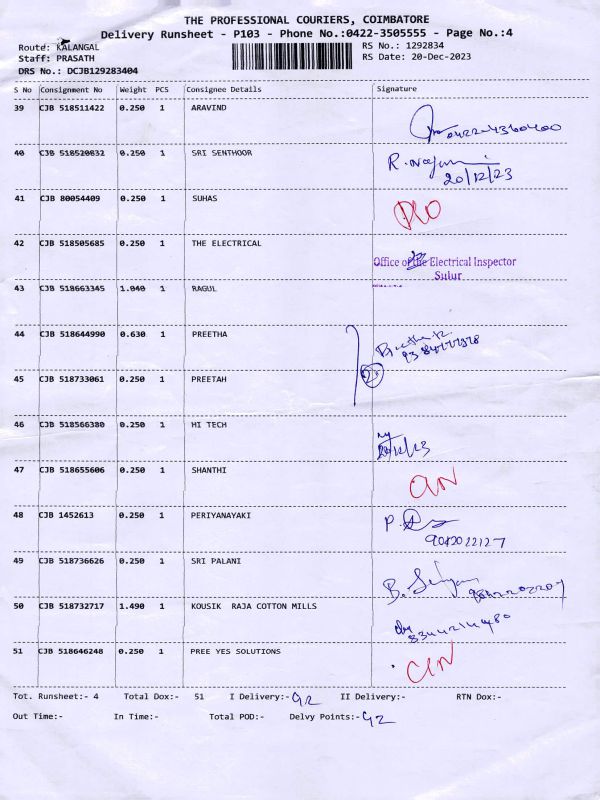 THE PROFESSIONAL COURIERS, COIMBATORE
Delivery Runsheet - P103 - Phone No.:0422-3505555 - Page No.:4
Route: KALANGAL
RS No.: 1292834
Staff: PRASATH
RS Date: 20-Dec-2023
DRS No.: DCJB129283404
S No Consignment No Weight PCS Consignee Details Signature
39 CJB 518511422 0.250 1 ARAVIND
40 CJB 518520832 0.250 1 SRI SENTHOOR
20/12/23
41 CJB 80054409 0.250 1 SUHAS
42 CJB 518505685 0.250 1 THE ELECTRICAL
Office of the Electrical Inspector
Sulur
43 CJB 518663345 1.040 1 RAGUL
44 CJB 518644990 0.630 1 PREETHA
45 CJB 518733061 0.250 1 PREETAH
46 CJB 518566380 0.250 1 HI TECH
20/12/23
47 CJB 518655606 0.250 1 SHANTHI
48 CJB 1452613 0.250 1 PERIYANAYAKI
49 CJB 518736626 0.250 1 SRI PALANI
50 CJB 518732717 1.490 1 KOUSIK RAJA COTTON MILLS
51 CJB 518646248 0.250 1 PREE YES SOLUTIONS
Tot. Runsheet:- 4 Total Dox:- 51 I Delivery:- 42 II Delivery:- RTN Dox:-
Out Time:- In Time:- Total POD:- Delvy Points:- 42